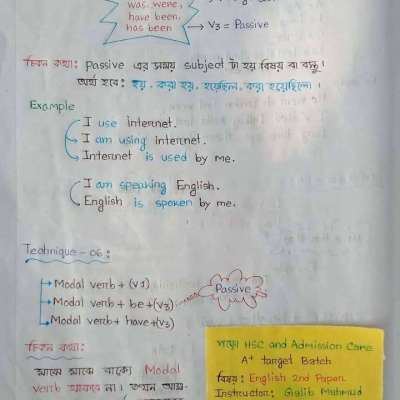 was, were,
have been,
has been → V3 = Passive
টেকন কথা: Passive এর সময় subject টা হয় বিষয় বা বস্তু।
অর্থ হবে: হয়, করা হয়, হয়েছিল, করা হয়েছিলো।
Example
I use internet.
I am using internet.
Internet is used by me.
I am speaking English.
English is spoken by me.
Technique - 06:
Modal verb + (v1)
Modal verb + be + (v3) Passive
Modal verb + have + (v3)
টেকন কথা:
মাঝে মাঝে বাক্যে Modal
verb থাকবে না। তখন
HSC and Admission Care
A+ target Batch
বিষয়: English 2nd Paper
Instructor: Mahmud